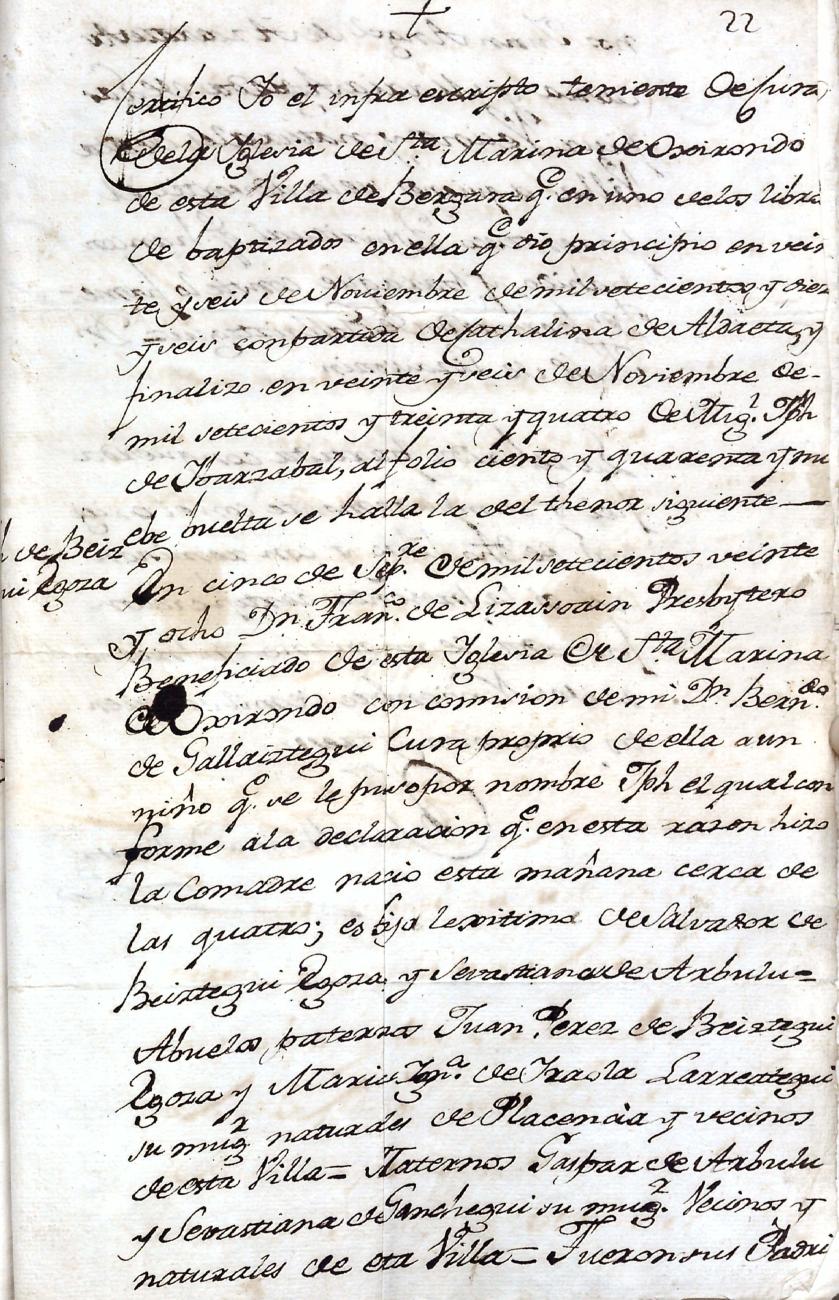 22
Certifico Yo el infra escripto teniente de Cura
de la Iglesia de Sta Marina de Oxirondo
de esta Villa de Bergara q.e en uno de los libro
de baptizados en ella q.e dio principio en vein
te y seis de Noviembre de mil setecientos y diez
y seis con partida de Cathalina de Aldaeta, y
finalizo en veinte y seis de Noviembre de-
mil setecientos y treinta y quatro de Mig.l Jph
de Ibarzabal, al folio ciento y quarenta y nu
ebe buelta se halla la del thenor siguiente—
de Beiz
ui Egoza
En cinco de Sep.re de mil setecientos veinte
y ocho Dn Fran.co de Lizassoain Presbytero
Beneficiado de esta Iglesia de Sta Marina
de Oxirondo con comision de mi Dn Bern.do
de Gallaiztegui Cura proprio de ella a un
niño q.e se le puso por nombre Jph el qual con
forme a la declaracion q.e en esta razon hizo
la Comadre nacio esta mañana cerca de
las quatro; es hijo lexitimo de Salvador de
Beiztegui Egoza y Sevastiana de Arbulu=
Abuelos paternos Juan Perez de Beiztegui
Egoza y Maria Ign.a de Iraola Larreategui
su mug.r naturales de Placencia y vecinos
de esta Villa= Maternos Gaspar de Arbulu
y Sevastiana de Ganchegui su mug.r Vecinos y
naturales de eta Villa= Fueron sus Padri